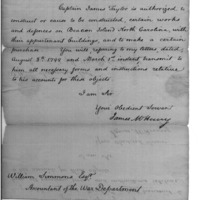 Captain James Taylor is authorized, to
construct or cause to be conducted, certain works
and defences on Beacon Island North Carolina, with
their appurtenant buildings, and to make a certain
purchase. You will referring to my letters dated
August 3d 1799 and March 1st instant transmit to
him all necessary forms and instructions relative
to his accounts for these objects
I am Sir
Your Obedient Servt
James McHenry
William Simmons Esqr
Accountant of the War Department